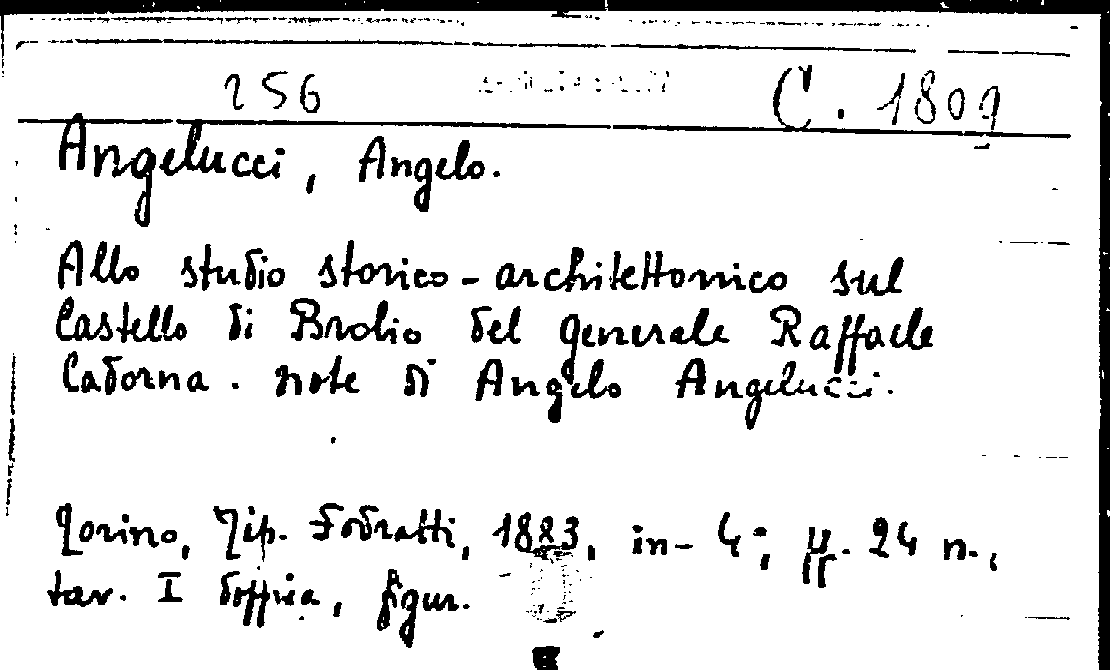 256 C. 1809
Angelucci, Angelo.
Allo studio storico-architettonico sul
Castello di Brolio del generale Raffaele
Cadorna. note di Angelo Angelucci.
Torino, Tip. Fodratti, 1883, in-4°; pp. 24 n.,
tav. I doppia, figur.